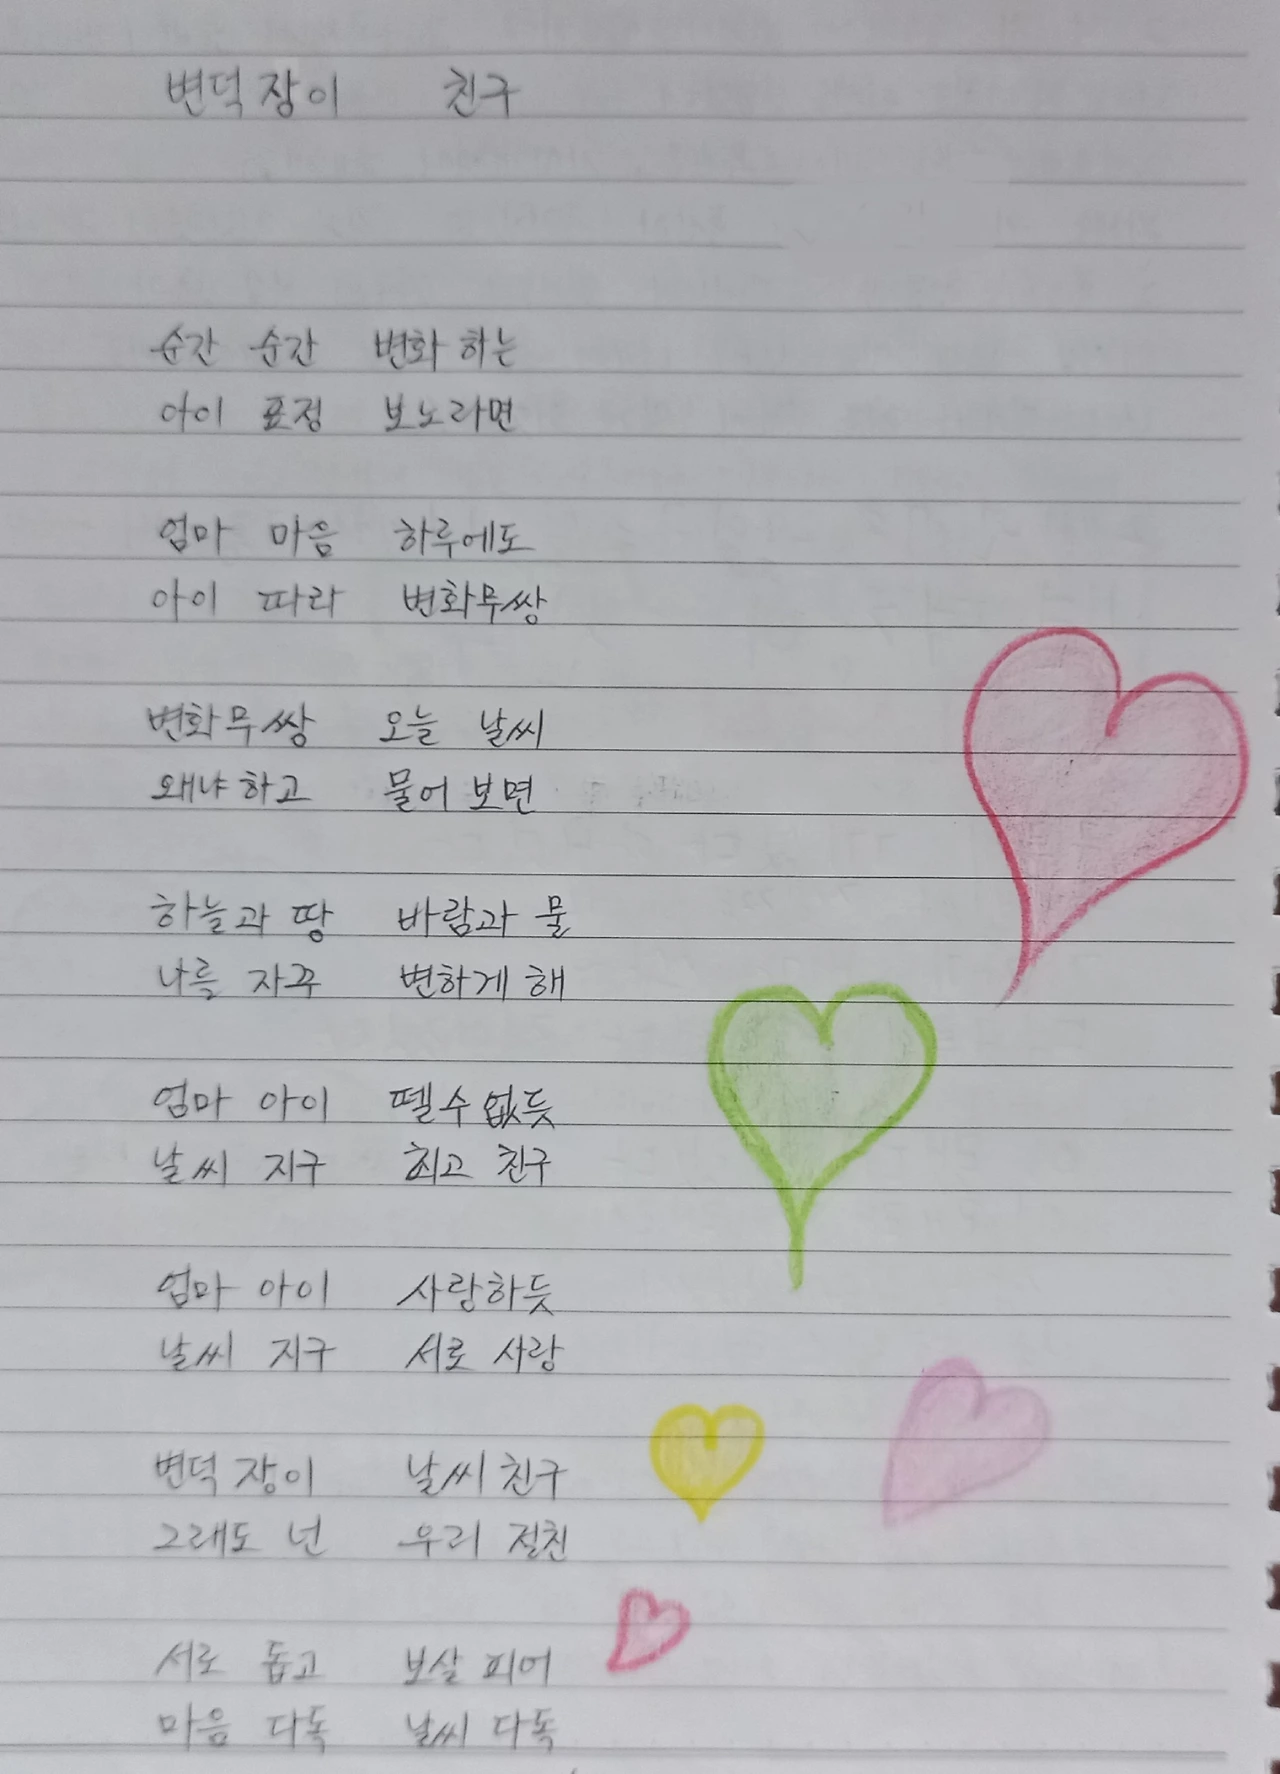 변덕장이 친구
순간 순간 변화하는
아이 표정 보노라면
엄마 마음 하루에도
아이 따라 변화무쌍
변화무쌍 오늘 날씨
왜냐하고 물어보면
하늘과 땅 바람과 물
나를 자꾸 변하게 해
엄마 아이 뗄수없듯
날씨 지구 최고 친구
엄마 아이 사랑하듯
날씨 지구 서로 사랑
변덕장이 날씨친구
그래도 넌 우리 절친
서로 돕고 보살피어
마음 다독 날씨 다독